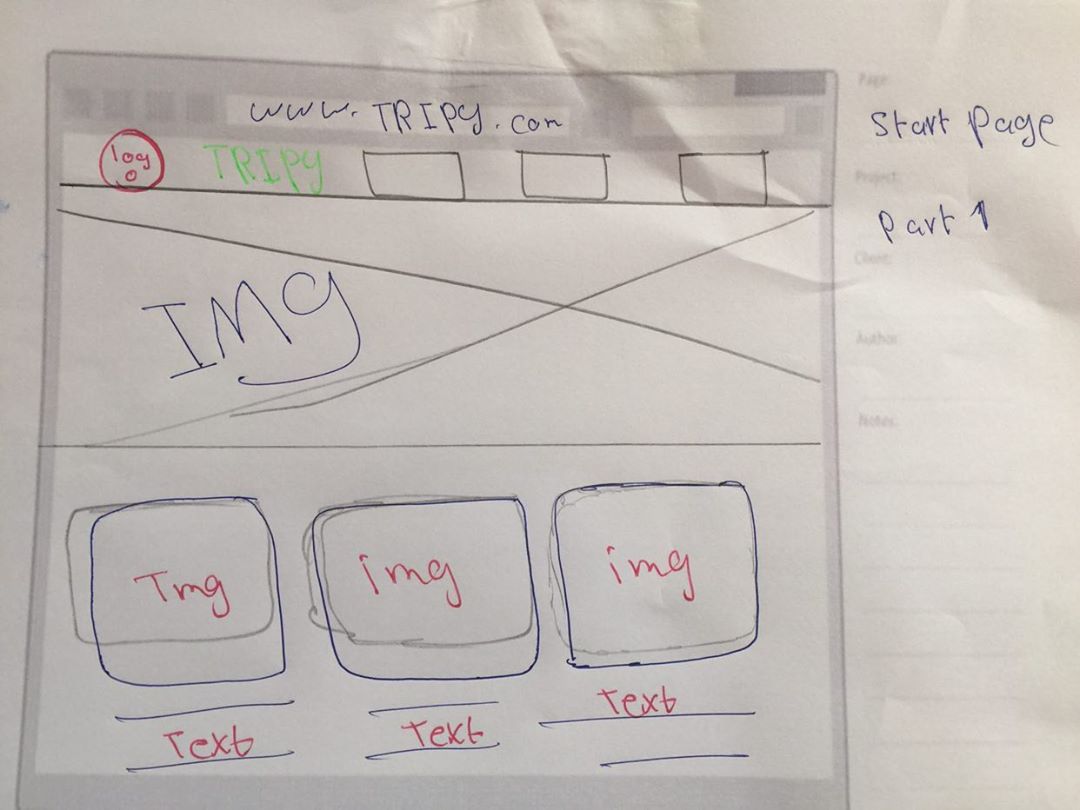 www.TRIPY.com
logo TRIPY
IMG
Img img img
Text Text Text
Page:
Start Page
Project:
Part 1
Client:
Author:
Notes: